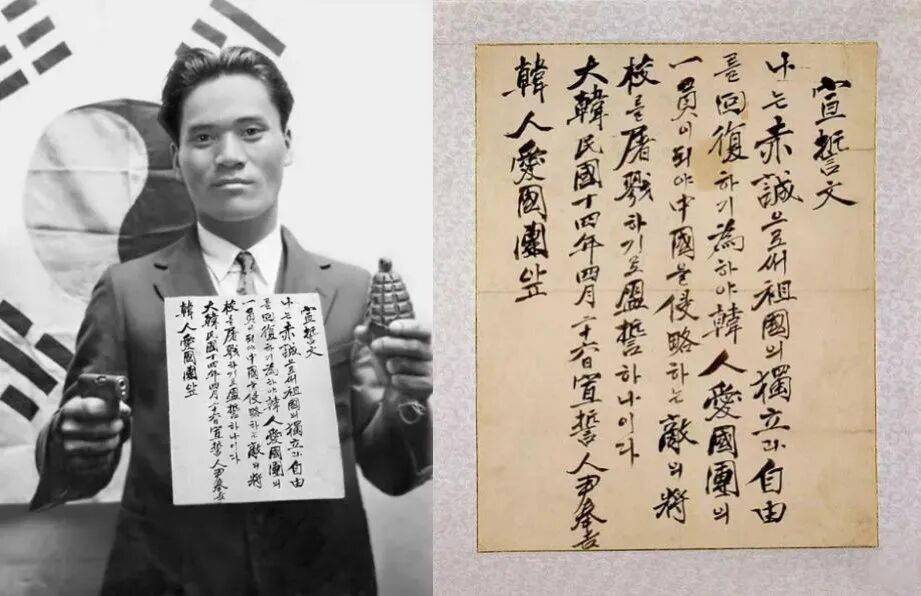 宣誓文
나는 赤誠으로써 祖國의 獨立과 自由
를 回復하기 為하야 韓人愛國團의
一員이 되야 中國을 侵略하는 敵의 將
校를 屠戮하기로 盟誓하나이다
大韓民國十四年四月二十六日 宣誓人 尹奉吉
韓人愛國團앞
宣誓文
나는 赤誠으로써 祖國의 獨立과 自由
를 回復하기 為하야 韓人愛國團의
一員이 되야 中國을 侵略하는 敵의 將
校를 屠戮하기로 盟誓하나이다
大韓民國十四年四月二十六日 宣誓人 尹奉吉
韓人愛國團앞